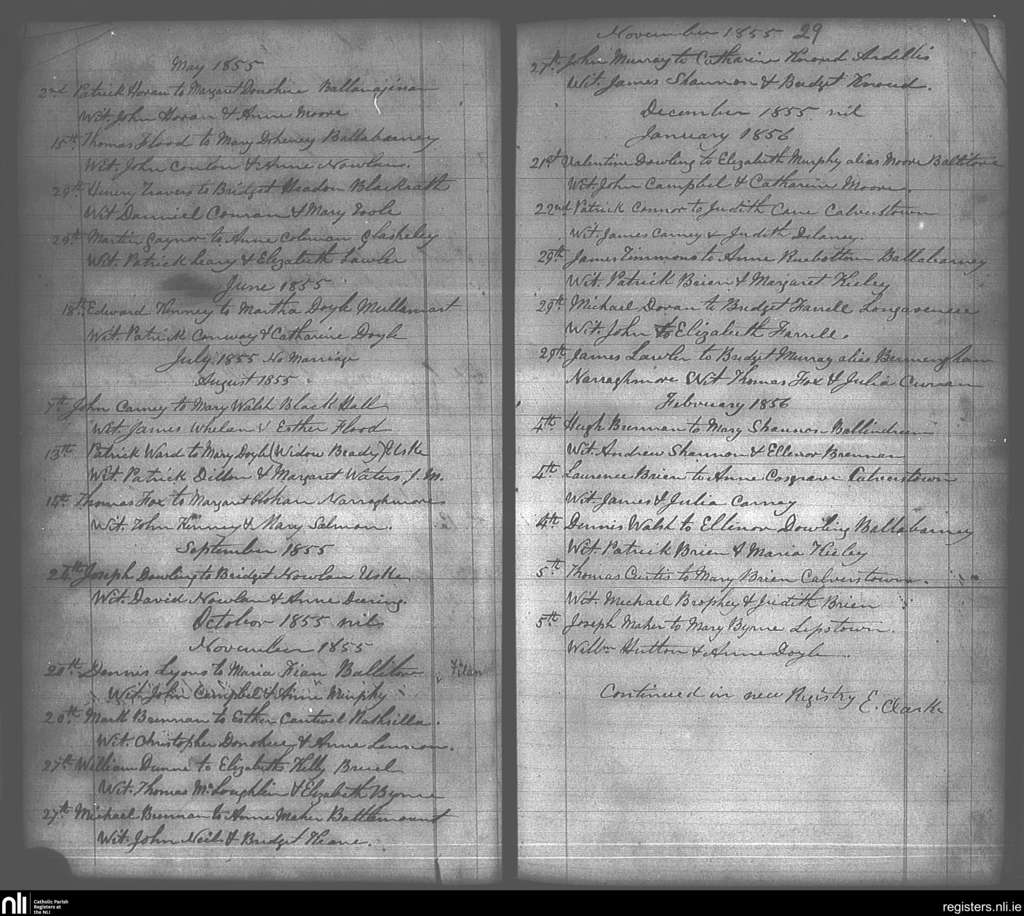 May 1855
2nd Patrick Horan to Margaret Donohue
Wit. John Horan & Anne Moore
15th Thomas Flood to Mary Doheney Ballabarney
Wit. John Conlon & Anne Nowlan.
29th Henry Travers to Bridget Headon Blackrath
Wit Danniel Conran & Mary Toole
29th Martin Gaynor to Anne Coleman Glasheley
Wit. Patrick Leary & Elizabeth Lawler
June 1855
18th Edward Kenney to Martha Doyle Mullamast
Wit. Patrick Conway & Catharine Doyle
July 1855 No Marriage
August 1855
7th John Carney to Mary Walsh Black Hall
Wit. James Whelan & Esther Flood
13th Patrick Ward to Mary Doyle (Widow Brady) Uske
Wit. Patrick Dillon & Margaret Waters, J. M.
14th Thomas Fox to Margaret Hokan Narraghmore
Wit. John Kinney & Mary Salmon.
September 1855
26th Joseph Dowling to Bridget Nowlan Uske
Wit. David Nowlan & Anne Deering.
October 1855 nil
November 1855
20th Dennis Lyons to Maria
Wit. John Campbel & Anne Murphy
20th Mark Brennan to Esther Cantwel Rathsilla.
Wit. Christopher Donohue & Anne
27th William Dunne to Elizabeth Kelly
Wit. Thomas McLoughlin & Elizabeth Byrne
27th Michael Brennan to Anne Maher Battlemount
Wit. John Neil & Bridget Keane.
November 1855 29
27th John Murray to Catharin Knowd Ardellis
Wit. James Shannon & Bridget Knowd.
December 1855 nil
January 1856
21st Valentine Dowling to Elizabeth Murphy alias Moore Baltitore
Wit. John Campbel & Catharin Moore.
22nd Patrick Connor to Judith Cane Calverstown
Wit. James Carney & Judith Delaney.
29th James Timmons to Anne Ruebottom Ballabarney
Wit. Patrick Beirn & Margaret Keeley
29th Michael Doran to Bridget Farrell
Wit. John & Elizabeth Farrell.
29th James Lawler to Bridget Murray alias Bermengham
Narraghmore Wit Thomas Fox & Julia Curran
February 1856
4th Hugh Brennan to Mary Shannon Ballindrum
Wit. Andrew Shannon & Ellenor Brennan
4th Laurence Brien to Anne Cosgrave Calverstown
Wit. James & Julia Carney
4th Dennis Walsh to Ellenor Dowling Ballabarney
Wit. Patrick Brien & Maria Keeley
5th Thomas Curtis to Mary Brien Calverstown.
Wit. Michael Brophey & Judith Brien
5th Joseph Maher to Mary Byrne Lipstown.
Willm Hutton & Anne Doyle.
Continued in new Registry E. Clarke
nli
Catholic Parish
Registers at
the NLI
registers.nli.ie